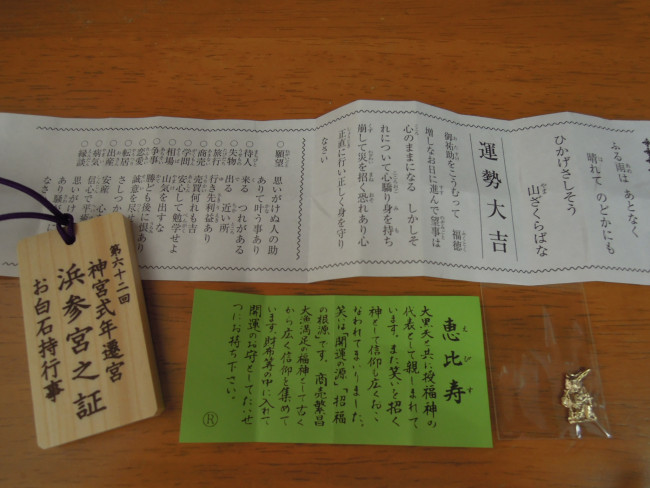 ふる雨は あとなく
晴れて のどかにも
ひかげさしそう
山ざくらばな
運勢大吉
御祐助をこうむって 福徳
増しなお日に進んで望事は
心のままになる しかしそ
れについて心驕り身を持ち
崩して災を招く恐れあり心
正直に行い正しく身を守り
なさい
○願望 思いがけぬ人の助
ありて叶う事あり
○待人 来る つれがある
○失物 出る 近い所
○旅行 行き先利益あり
○商売 売買何れも吉
○学問 安心して勉学せよ
○相場 山気を出すな
○争事 勝ども後に恨あり
○恋愛 誠意を尽
○転居 さしつか
○出産 安産 心
○病気 信心で平
○縁談 思いがけ
あり騒が
なさ
第六十二回
神宮式年遷宮
浜参宮之証
お白石持行事
恵比寿
えびす
大黒天と共に授福神の
代表として親しまれて
います。また笑いを招く
神として信仰も広くおこ
なわれてまいりました。
笑いは「開運の源」「招福
の根源」です。商売繁昌
大漁満足の福神として古く
から広く信仰を集めて
います。財布等の中に入れて
開運のお守としてたいせ
つにお持ち下さい。
Ⓡ